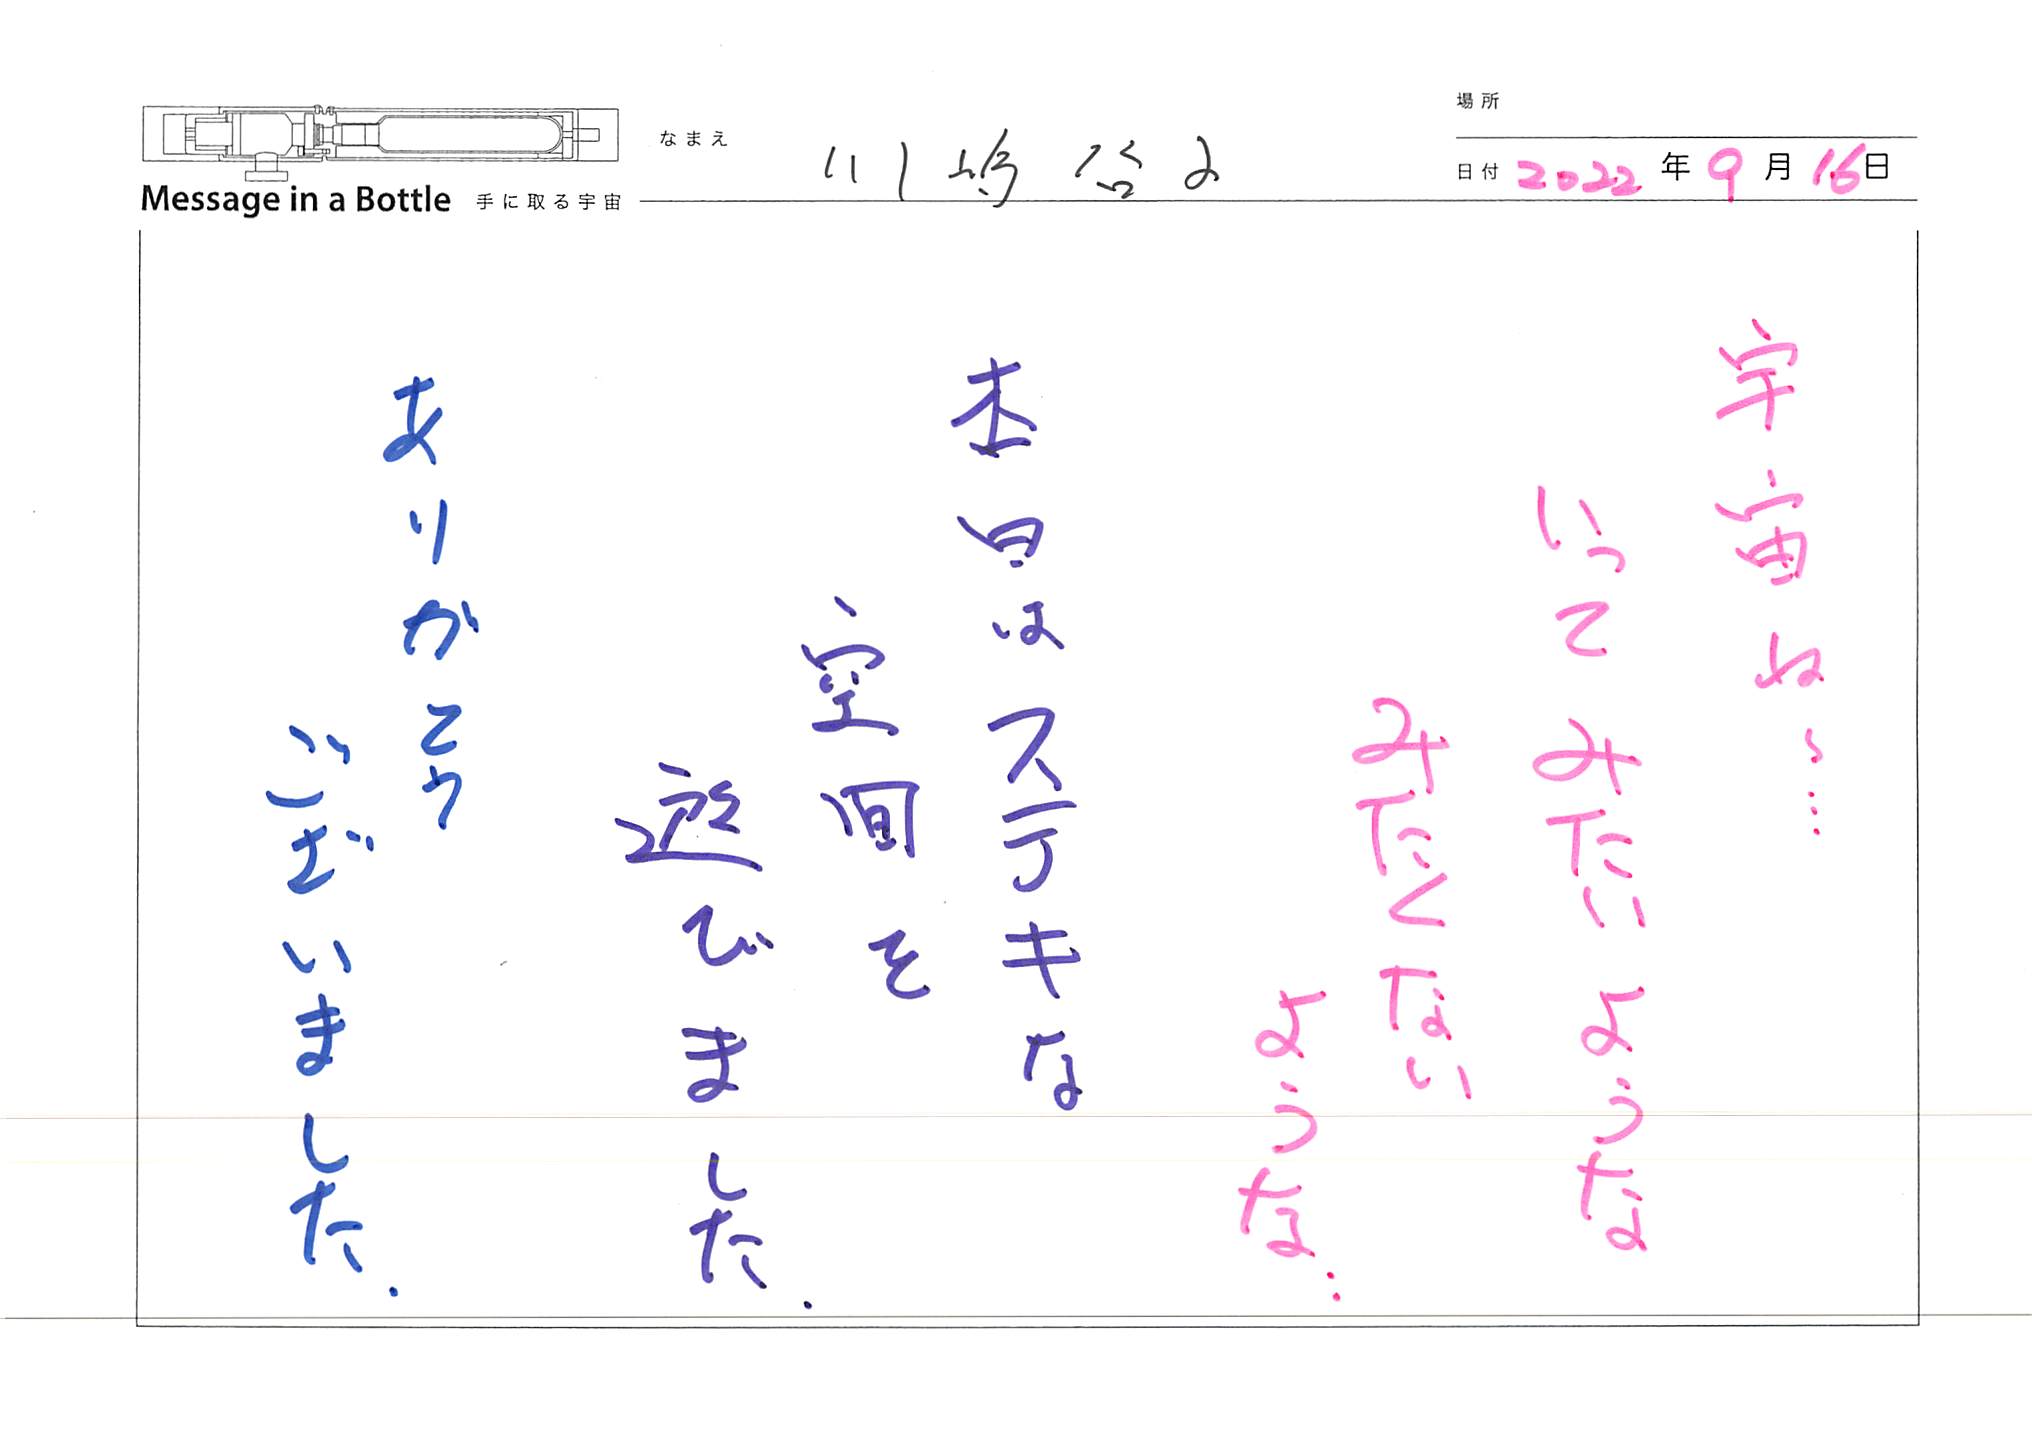 場所
なまえ 川嶋
日付 2022年9月16日
Message in a Bottle 手に取る宇宙
宇宙ね〜…
いってみたいような
みたくない
ような…
本日はステキな
空間を
遊びました.
ありがとう
ございました.